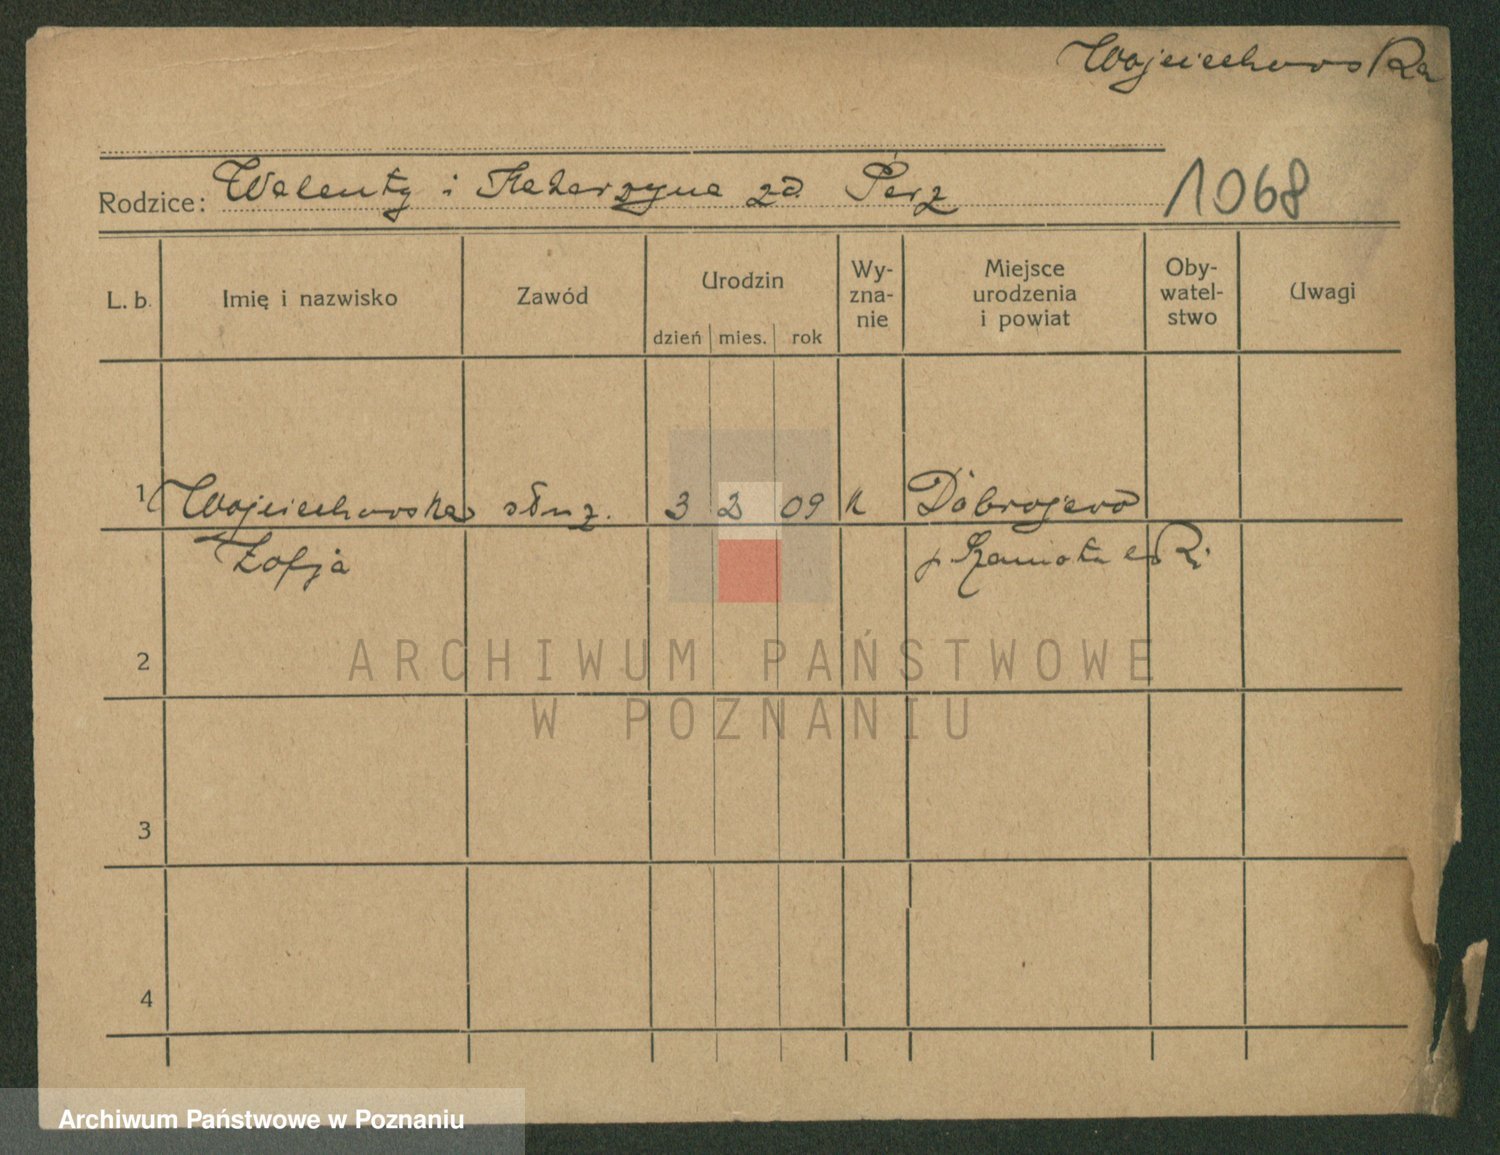 Wojciechowska
Rodzice: Walenty i Katarzyna zd. Perz
1068
L. b. Imię i nazwisko Zawód Urodzin Wy-zna-nie Miejsce urodzenia i powiat Oby-watel-stwo Uwagi
dzień mies. rok
1 Wojciechowska służ. 3 2 09 k Dobrojewo
Zofja p. Szamotulski
2
ARCHIWUM PAŃSTWOWE
W POZNANIU
3
4
Archiwum Państwowe w Poznaniu